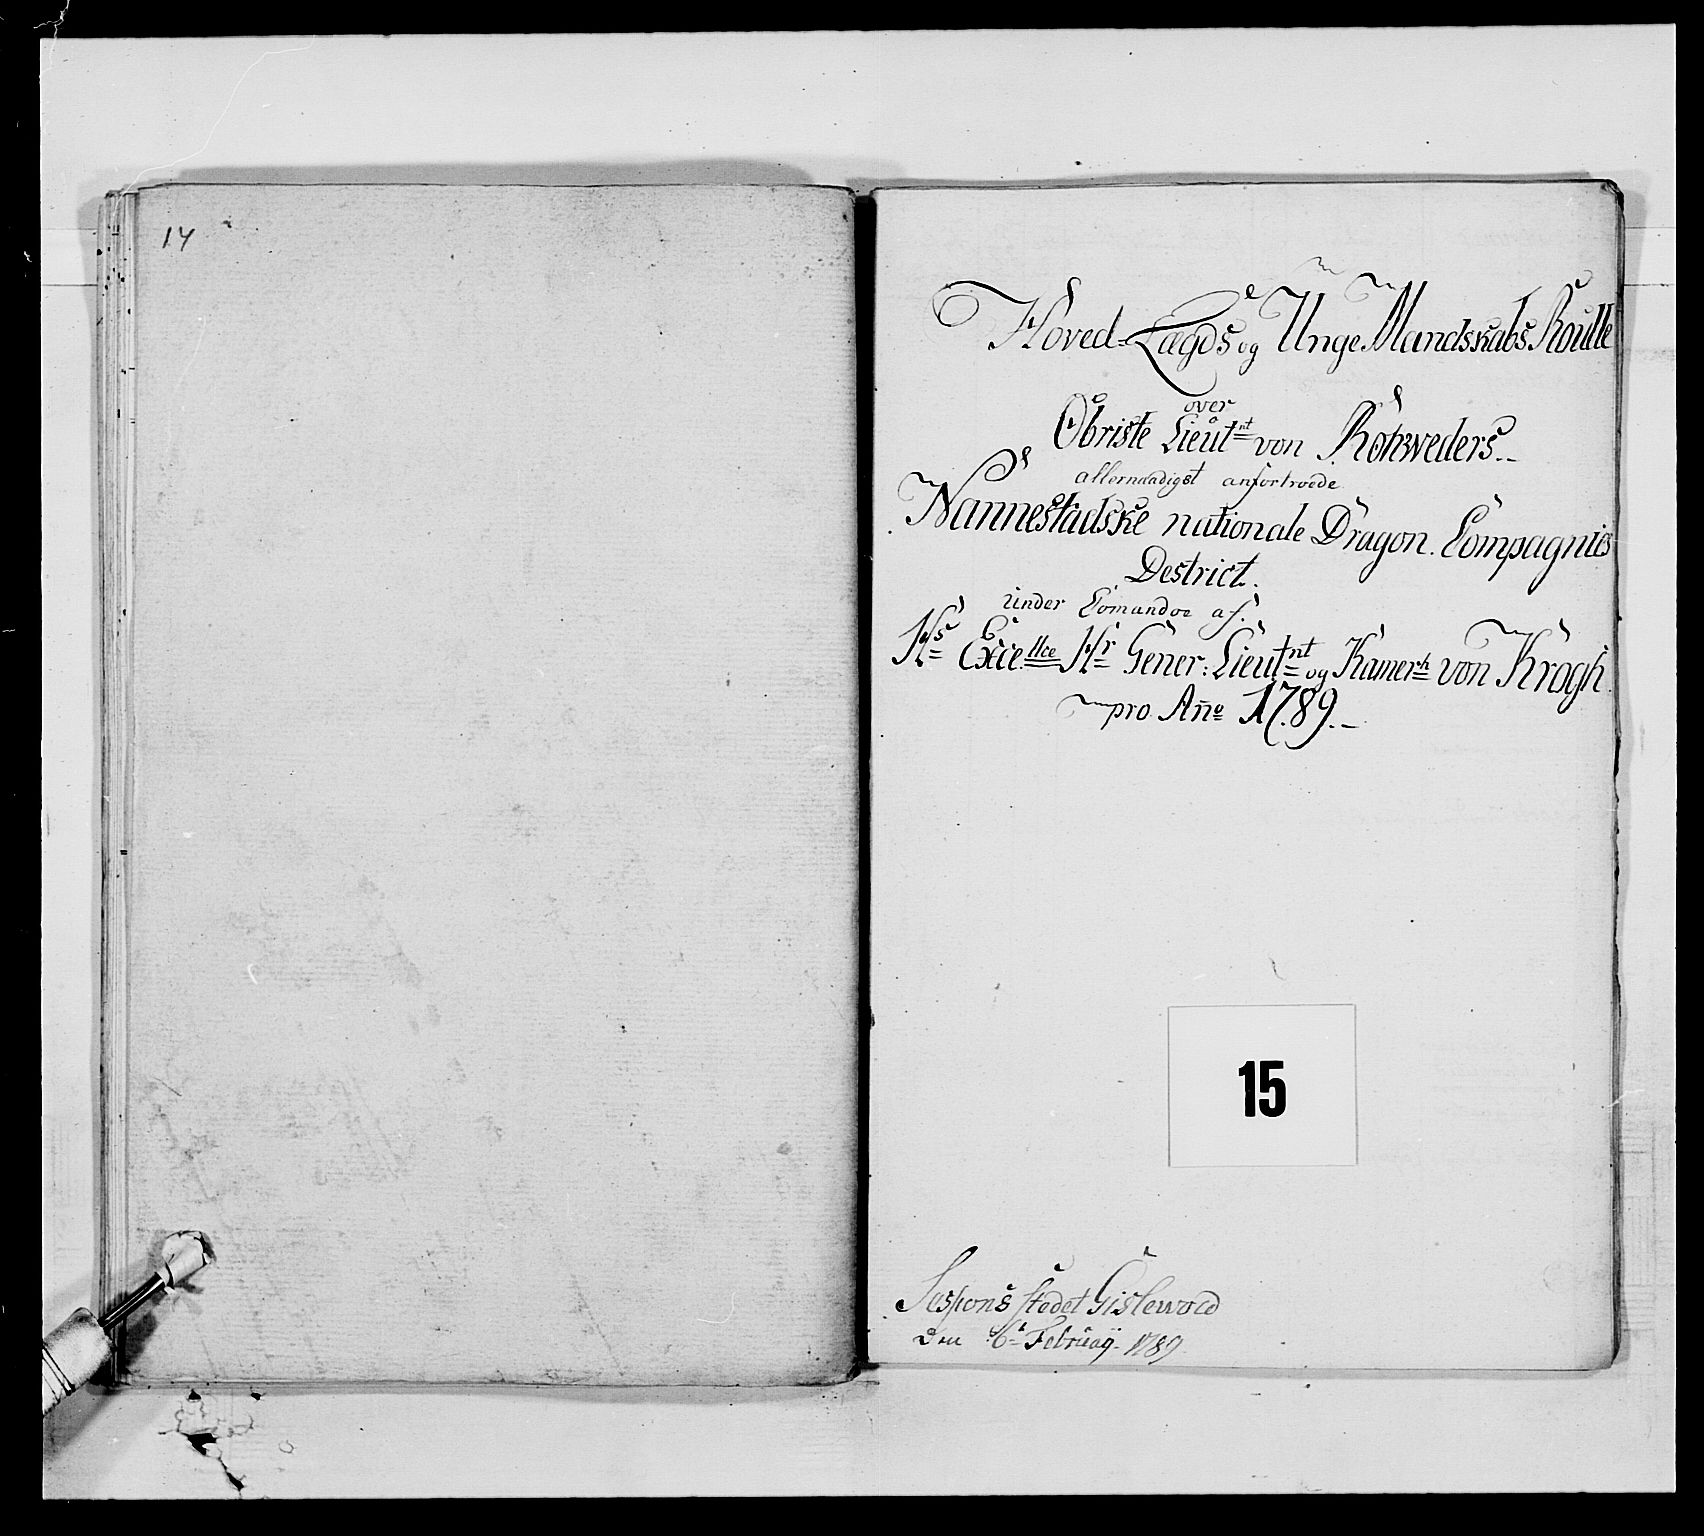 14
Hoved-Lægds og Unge Mandskabs Roulle
over
Obriste Lieutnt von Rohweders
allernaadigst anfortroede
Nannestadske nationale Dragon Compagnies
District.
under Comandoe af
Hs Excellce Hr Gener: Lieutnt og Kamerh von Krogh
pro Año 1789.
15
Sessions stedet Gislewold
den 6t Februarÿ 1789